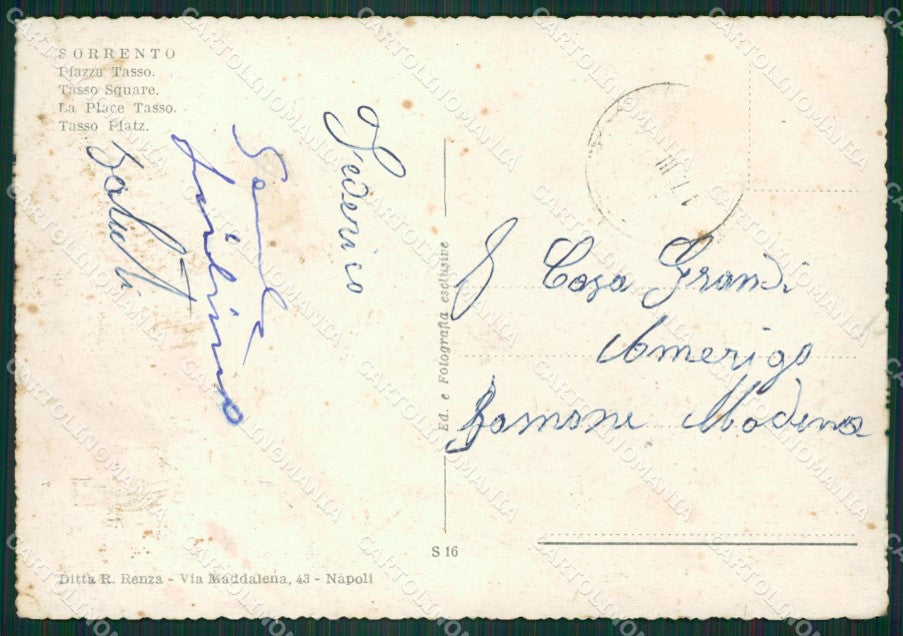 SORRENTO
Piazza Tasso.
Tasso Square.
La Place Tasso.
Tasso Platz.
Federico
Saluti
Ed. e Fotografia esclusive
Casa Grandi
Amerigo
Modena
S 16
Ditta R. Renza - Via Maddalena, 43 - Napoli
CARTOLINOMANIA